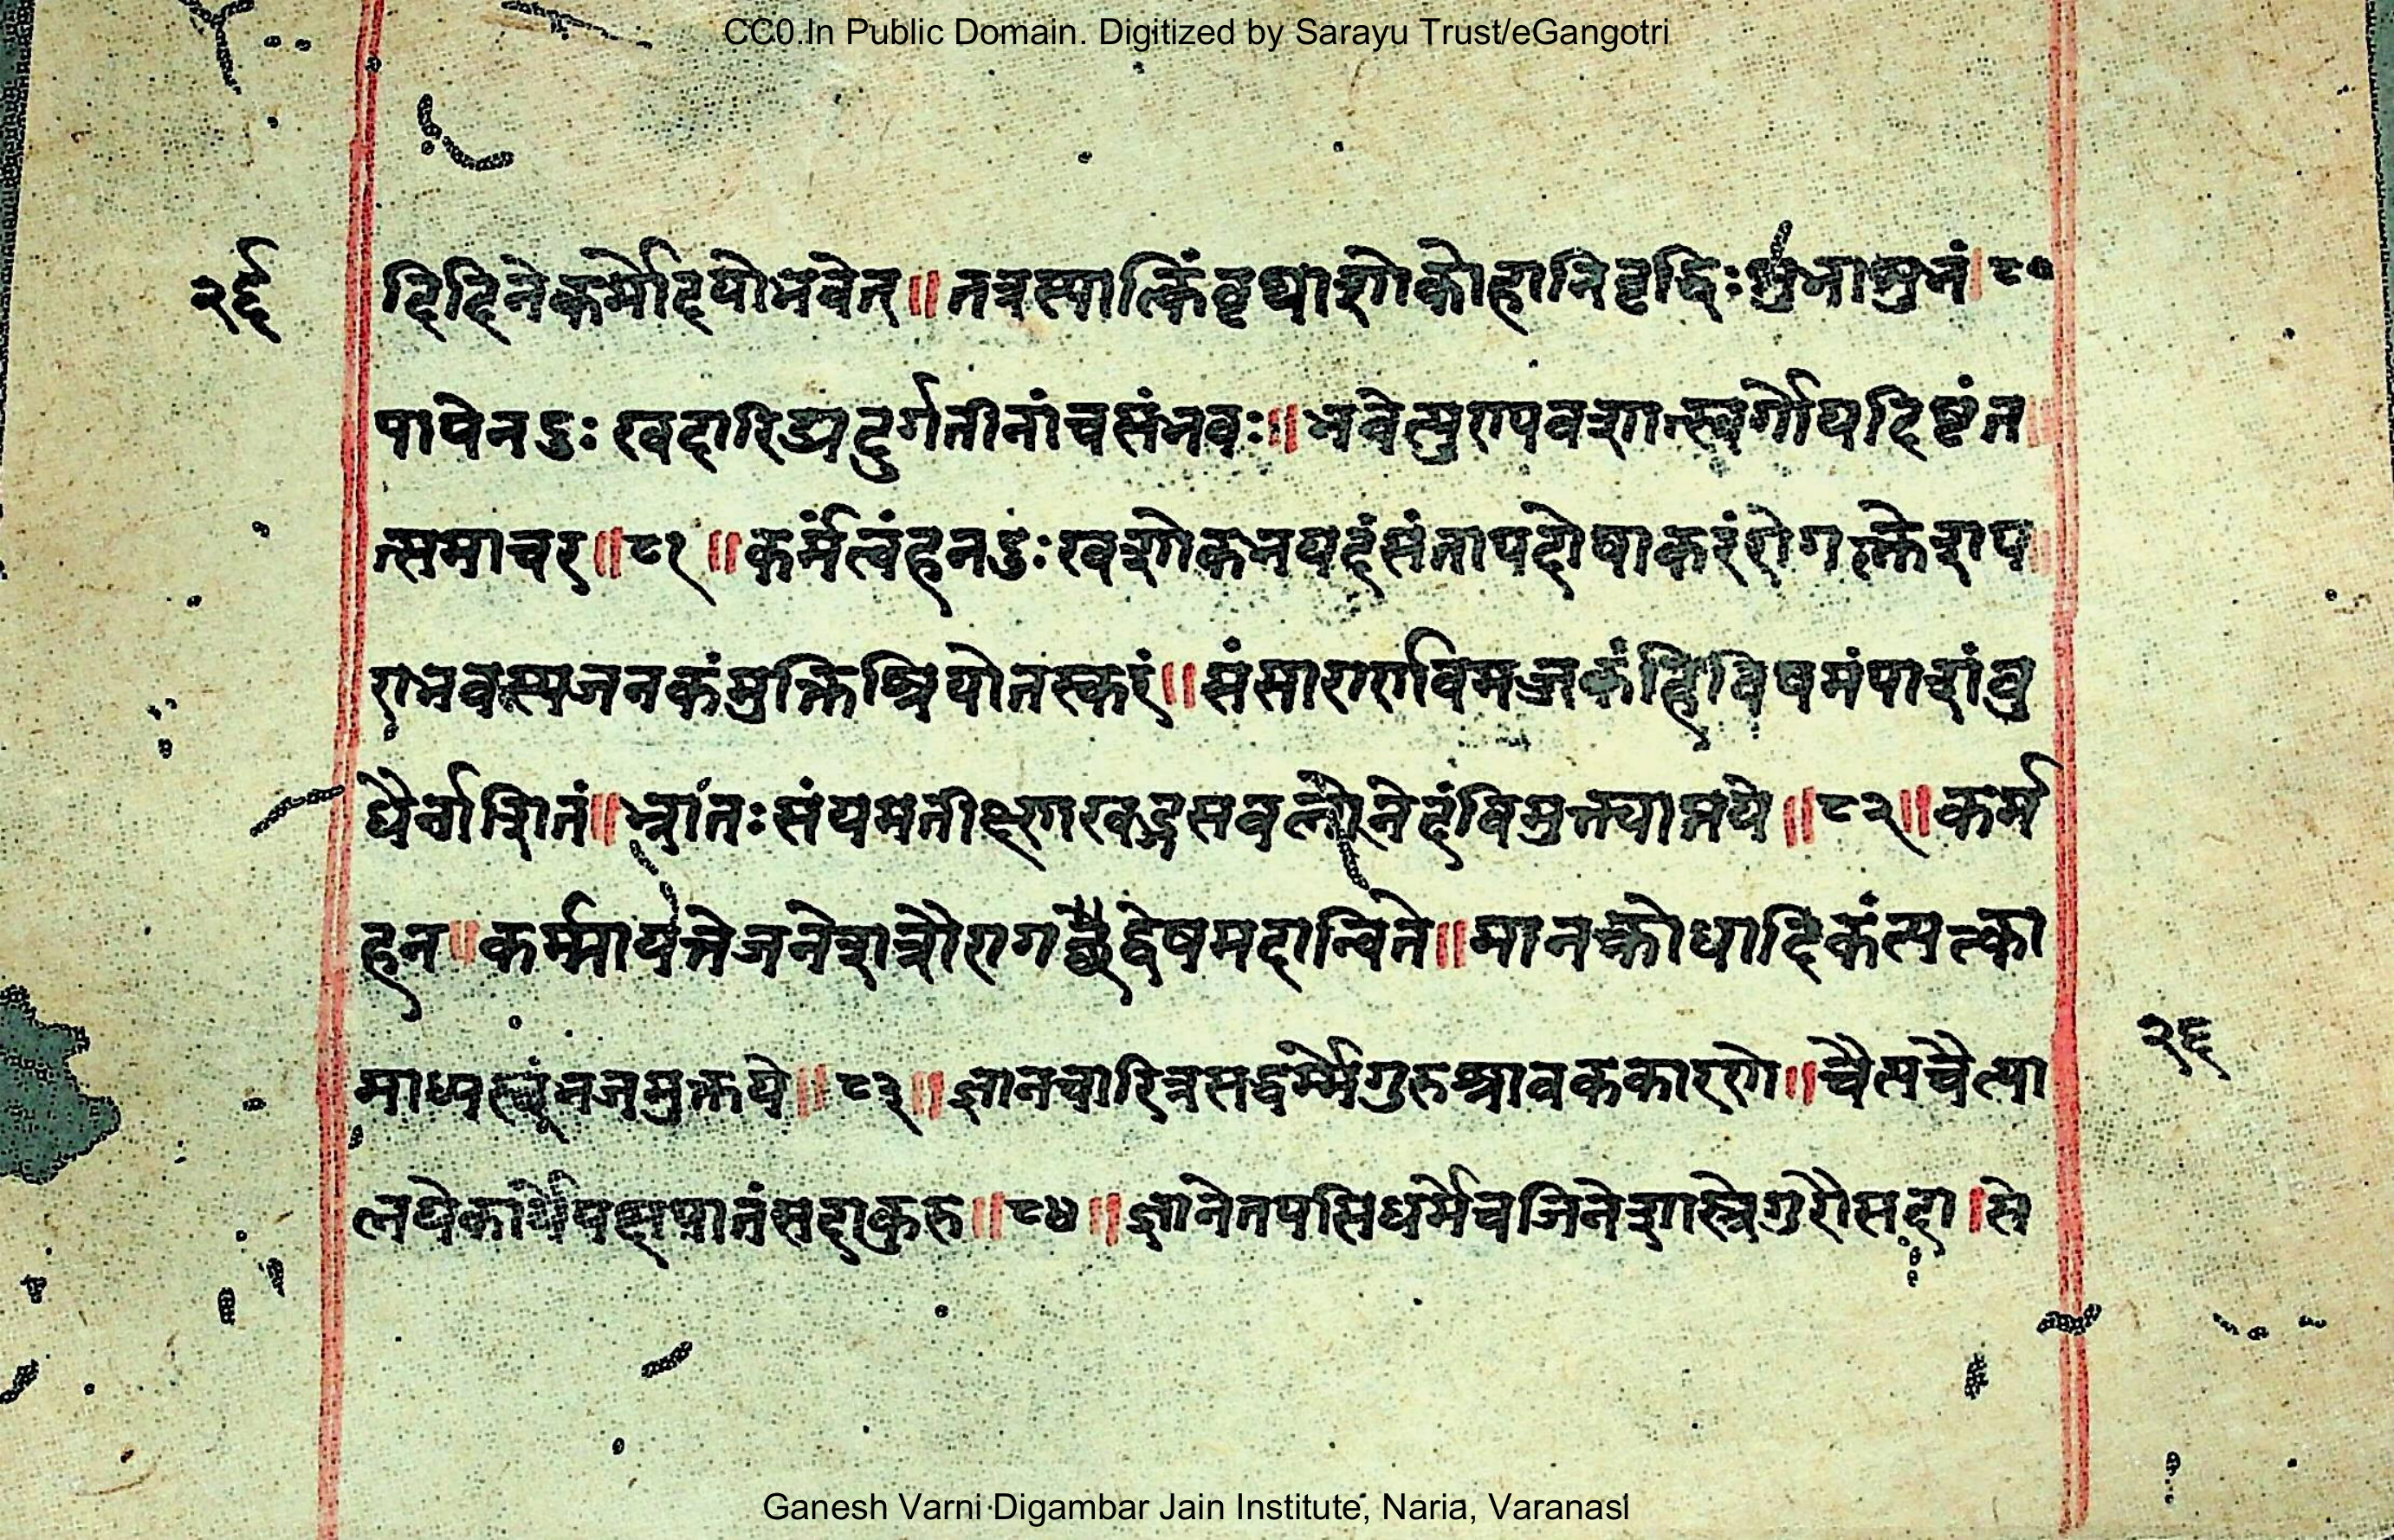 CC0.In Public Domain. Digitized by Sarayu Trust/eGangotri
दिदिनेकर्मोदयोभवेत्॥तत्रस्यात्किंवृथाशोकोहानिवृद्धिः
पापेनदुःखदारिद्र्यदुर्गतीनांचसंभवः॥भवेत्पुण्यवशात्स्वर्गोयदिष्टंत
त्समाचर॥८१॥कर्मत्वंहनदुःखशोकभयदंसंतापदोषाकरंरोगक्लेशप
राभवस्यजनकंमुक्तिश्रियोतस्करं॥संसारार्णवमज्जकंहिविषमंपाशांबु
धैर्नाशितं॥भ्रातःसंयमतीक्ष्णखङ्गसबलोनेदंविमुक्त्याप्तये॥८२॥कर्म
हन॥कर्म्मायत्तेजनेशत्रौरागद्वेषमदान्विते॥मानक्रोधादिकंत्यत्का
माध्यस्थ्यंभजमुक्तये॥८३॥ज्ञानचारित्रसद्धर्म्मेगुरुश्रावककारणे॥चैत्यचैत्या
लयेकार्येपक्षपातंसदाकुरु॥८४॥ज्ञानेतपसिधर्मेचजिनेशास्त्रेगुरौसदा।से
२६
Ganesh Varni Digambar Jain Institute, Naria, Varanasi